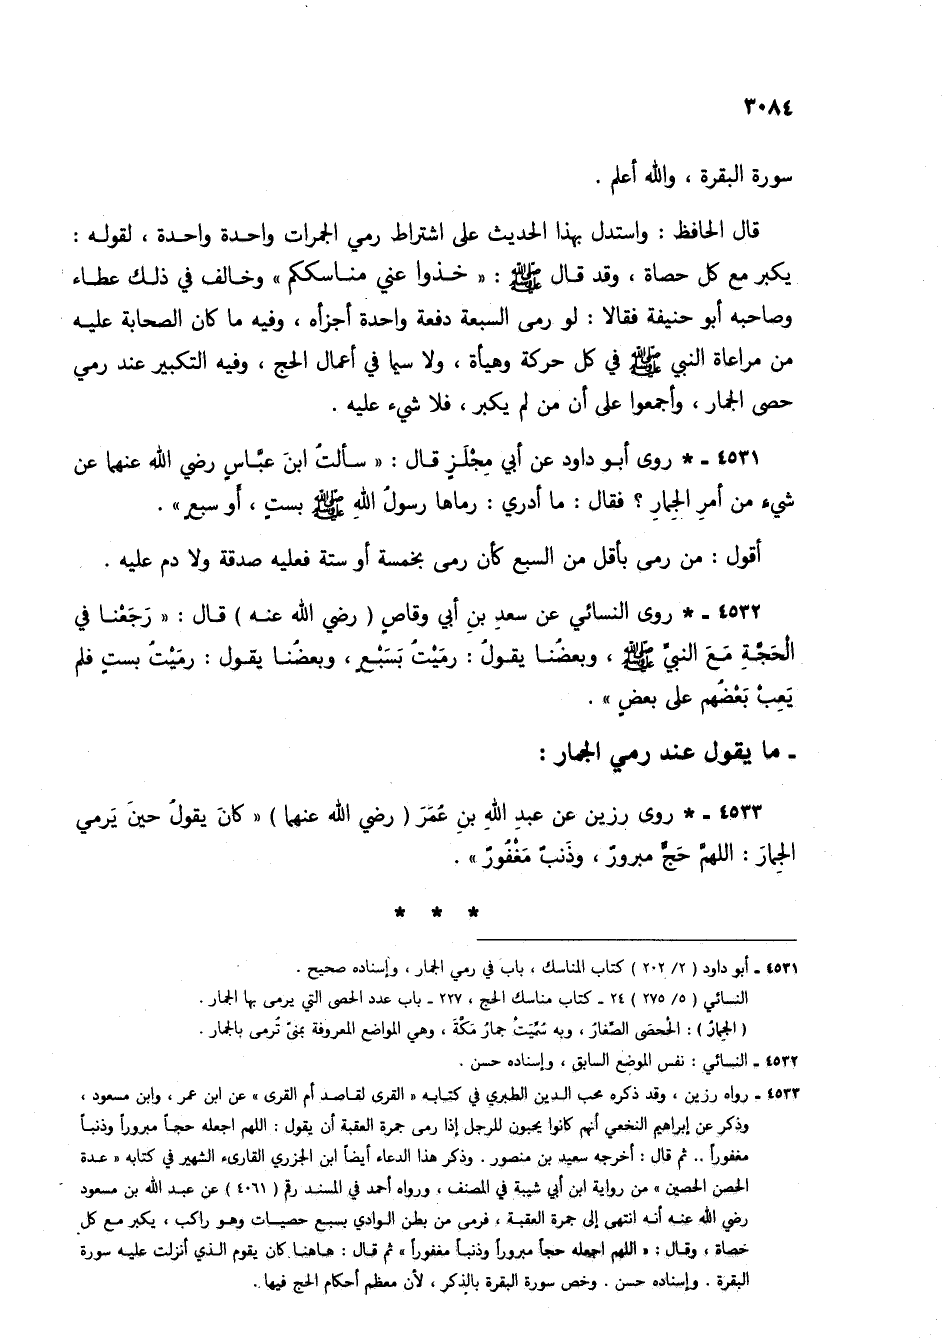 ٣٠٨٤
سورة البقرة ، والله أعلم .
قال الحافظ : واستدل بهذا الحديث على اشتراط رمي الجمرات واحدة واحدة ، لقوله :
يكبر مع كل حصاة ، وقد قال ﷺ : « خذوا عني مناسككم » وخالف في ذلك عطاء
وصاحبه أبو حنيفة فقالا : لو رمى السبعة دفعة واحدة أجزأه ، وفيه ما كان الصحابة عليه
من مراعاة النبي ﷺ في كل حركة وهيأة ، ولا سيما في أعمال الحج ، وفيه التكبير عند رمي
حصى الجمار ، وأجمعوا على أن من لم يكبر ، فلا شيء عليه .
٤٥٣١ ـ * روى أبو داود عن أبي مِجْلَزٍ قال : « سألتُ ابنَ عبَّاسٍ رضي الله عنهما عن
شيء من أمرِ الجِمارِ ؟ فقال : ما أدري : رماها رسولُ اللهِ ﷺ بستٍ ، أو سبعٍ » .
أقول : من رمى بأقل من السبع كأن رمى بخمسة أو ستة فعليه صدقة ولا دم عليه .
٤٥٣٢ ـ * روى النسائي عن سعدِ بنِ أبي وقاصٍ ( رضي الله عنه ) قال : « رَجَعْنا في
الْحَجَّةِ مَعَ النبيِّ ﷺ ، وبعضُنا يقولُ : رمَيْتُ بَسَبْعٍ ، وبعضُنا يقول : رميْتُ بستٍ فلم
يَعِبْ بَعْضُهم على بعضٍ » .
ـ ما يقول عند رمي الجمار :
٤٥٣٣ ـ * روى رزين عن عبدِ اللهِ بنِ عُمَرَ ( رضي الله عنهما ) « كانَ يقولُ حينَ يَرمي
الجِمارَ : اللهمَّ حَجٌّ مبرورٌ ، وذَنبٌ مَغْفُورٌ » .
* * *
٤٥٣١ ـ أبو داود ( ٢/ ٢٠٢ ) كتاب المناسك ، باب في رمي الجمار ، وإسناده صحيح .
النسائي ( ٥/ ٢٧٥ ) ٢٤ ـ كتاب مناسك الحج ، ٢٢٧ ـ باب عدد الحصى التي يرمى بها الجمار .
( الجِمارُ ) : الْحصَى الصِّغارُ ، وبه سُمِّيَتْ جمارُ مَكَّةَ ، وهي المواضع المعروفة بمنىً تُرمى بالجمار .
٤٥٣٢ ـ النسائي : نفس الموضع السابق ، وإسناده حسن .
٤٥٣٣ ـ رواه رزين ، وقد ذكره محب الدين الطبري في كتابه « القرى لقاصد أم القرى » عن ابن عمر ، وابن مسعود ،
وذكر عن إبراهيم النخعي أنهم كانوا يحبون للرجل إذا رمى جمرة العقبة أن يقول : اللهم اجعله حجاً مبروراً وذنباً
مغفوراً .. ثم قال : أخرجه سعيد بن منصور . وذكر هذا الدعاء أيضاً ابن الجزري القارىء الشهير في كتابه « عدة
الحصن الحصين » من رواية ابن أبي شيبة في المصنف ، ورواه أحمد في المسند رقم ( ٤٠٦١ ) عن عبد الله بن مسعود
رضي الله عنه أنه انتهى إلى جمرة العقبة ، فرمى من بطن الوادي بسبع حصيات وهو راكب ، يكبر مع كل
حصاة ، وقال : « اللهم اجعله حجاً مبروراً وذنباً مغفوراً » ثم قال : هاهنا كان يقوم الذي أنزلت عليه سورة
البقرة . وإسناده حسن . وخص سورة البقرة بالذكر ، لأن معظم أحكام الحج فيها .